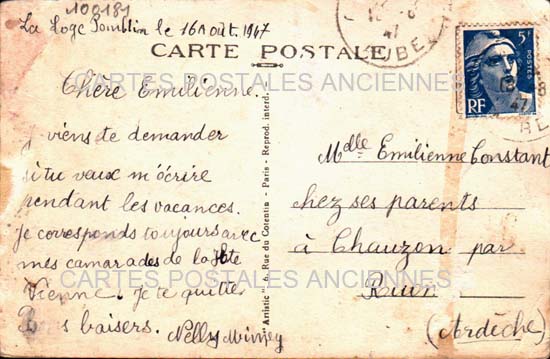 100181
La Loge Pomblin le 16 Août 1947
CARTE POSTALE
Chère Emilienne.
je viens te demander
si tu veux m'écrire
pendant les vacances.
Je corresponds toujours avec
mes camarades de la Hte
Vienne. Je te quitte
Bons baisers. Nelly
"Artistic" 6, Rue du Cotentin - Paris - Reprod. interd.
5F
POSTES
RF
47
AUBE
Mdlle Emilienne Constant
chez ses parents
à Chauzon par
Ruoms
(Ardèche)
CARTES POSTALES ANCIENNES
CARTES POSTALES ANCIENNES